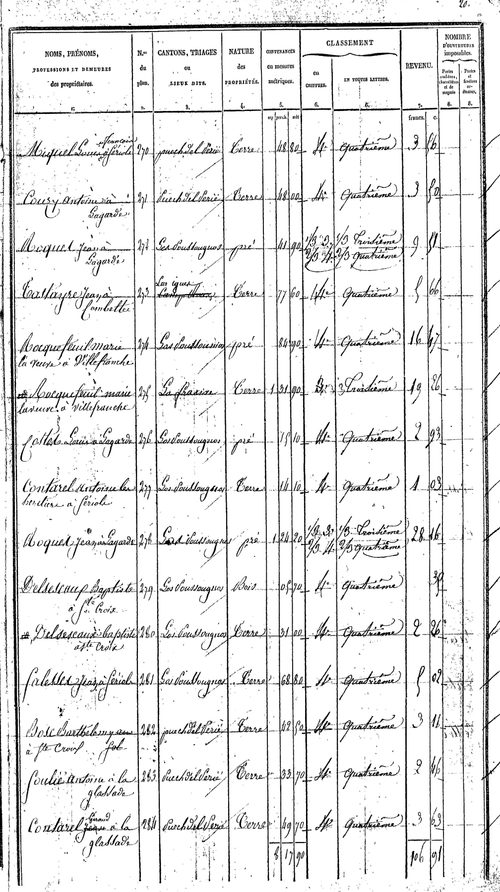 20.
NOMS, PRÉNOMS, PROFESSIONS ET DEMEURES des propriétaires. N.os du plan. CANTONS, TRIAGES ou LIEUX DITS. NATURE des PROPRIÉTÉS. CONTENANCES en mesures métriques. CLASSEMENT en CHIFFRES. EN TOUTES LETTRES. REVENU. NOMBRE D'OUVERTURES imposables.
1. 2. 3. 4. 5. 6. 6. 7. 8. 8.
francs. c.
Miquel Louis françois à fériols 270 puech del Périé Terre 48 80 4e quatrième 3 56
Coury Antoine à Lagarde 271 Puech del Périé Terre 48 00 4e quatrième 3 50
Roquet Jean à Lagarde 272 Las Poussougnos pré 41 90 1/3 3e 1/3 Troisième 9 51
2/3 4e 2/3 quatrième
Jean à Combettes 273 Terre 77 60 4e quatrième 5 66
Rocquefeuil marie la veuve à Villefranche 274 Las Poussougnos pré 84 90 4e quatrième 16 47
Rocquefeuil marie la veuve à Villefranche 275 La frasine Terre 1 31 90 3e Troisième 19 26
Costes Louis à Lagarde 276 Las Poussougnos pré 15 10 4e quatrième 2 93
Contarel Antoine les héritiers à fériols 277 Las Poussougnos Terre 14 10 4e quatrième 1 03
Roquet Jean à Lagarde 278 Las Poussougnos pré 1 24 20 1/3 3e 1/3 Troisième 28 16
2/3 4e 2/3 quatrième
Delsescaux Baptiste à Ste Croix 279 Las Poussougnos Bois 05 70 4e quatrième 39
Delsescaux baptiste à Ste Croix 280 Las Poussougnos Terre 31 00 4e quatrième 2 26
Jean à fériols 281 Las Poussougnos Terre 68 80 4e quatrième 5 02
Bosc Barthélemy à Ste Croix 282 puech del Périé Terre 42 50 4e quatrième 3 11
Soulié Antoine à la glassade 283 Puech del Périé Terre 33 70 4e quatrième 2 46
Contarel Jean à la glassade 284 Puech del Périé Terre 49 70 4e quatrième 3 63
8 17 90 106 91